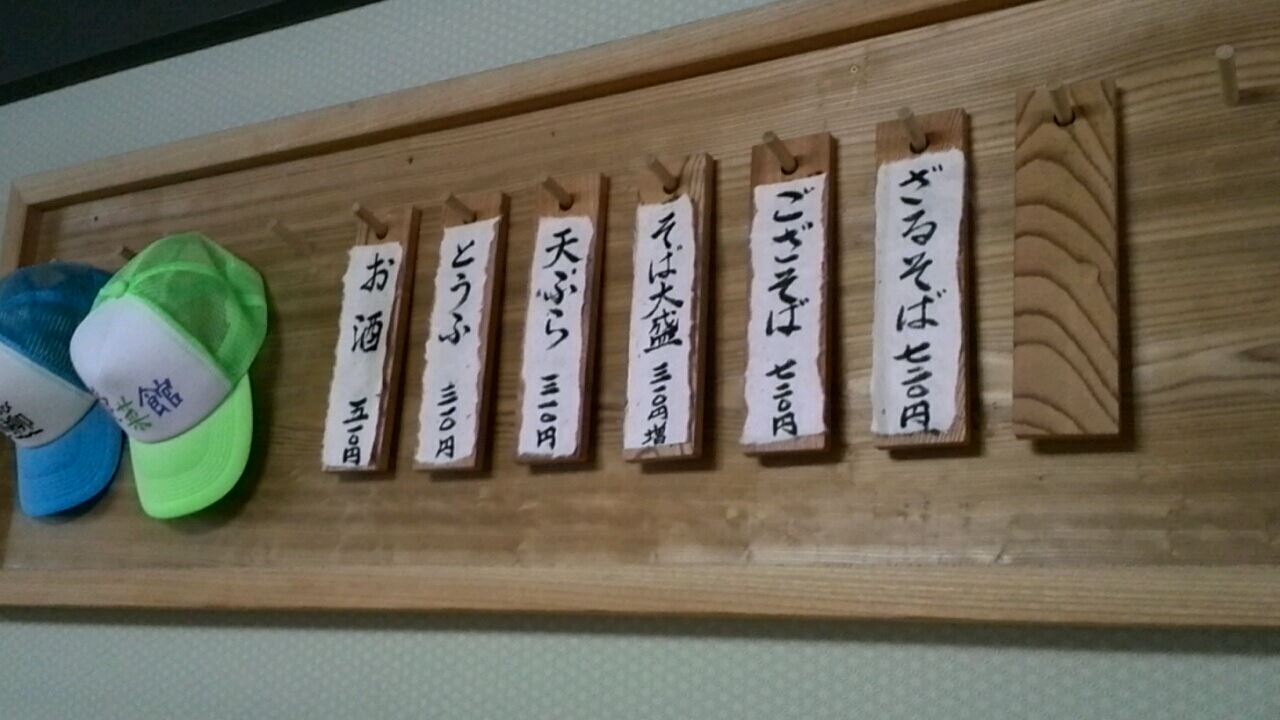 ざるそば 七二〇円
ござそば 七二〇円
そば大盛 三一〇円増
天ぷら 三一〇円
とうふ 三一〇円
お酒 五一〇円
館